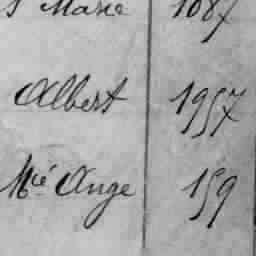 s Marie 1087
Albert 1957
Mié Ange 159